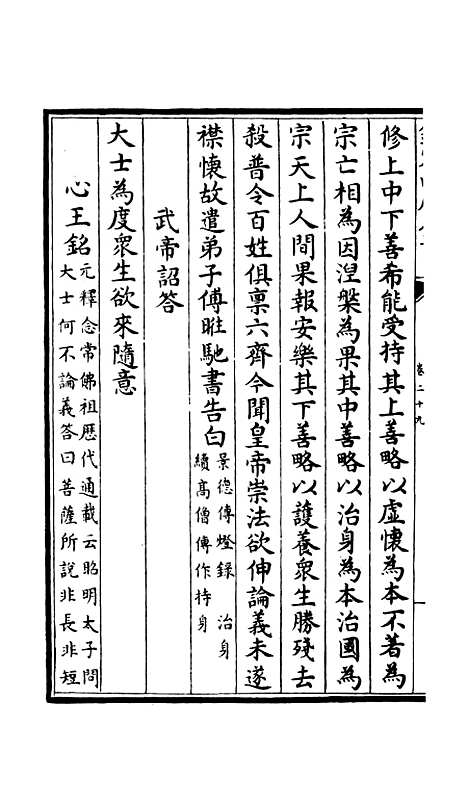 卷二十九
一
修上中下善希能受持其上善略以虛懷為本不著為
宗亡相為因涅槃為果其中善略以治身為本治國為
宗天上人間果報安樂其下善略以護養衆生勝殘去
殺普令百姓俱禀六齊今聞皇帝崇法欲伸論義未遂
襟懷故遣弟子傅暀馳書告白
景德傳燈録　治身
續高僧傳作持身
武帝詔答
大士為度衆生欲來隨意
心王銘
元釋念常佛祖歷代通載云昭明太子問
大士何不論義答曰菩薩所說非長非短